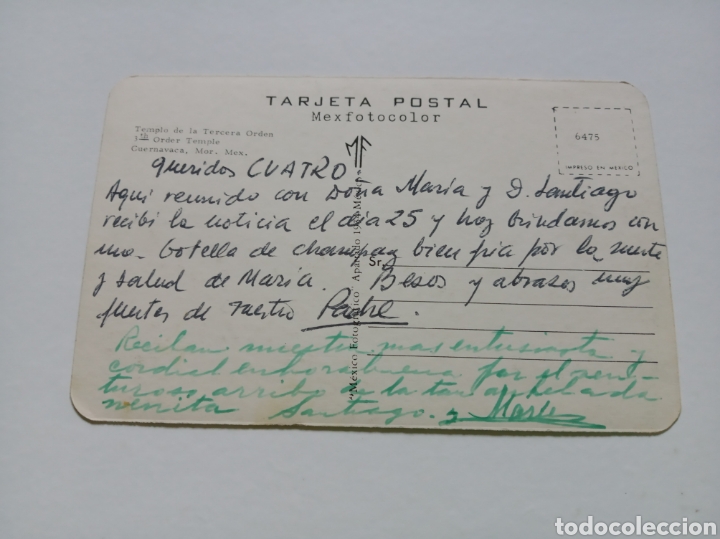 TARJETA POSTAL
Mexfotocolor
Templo de la Tercera Orden
3th Order Temple
Cuernavaca, Mor. Mex.
6475
IMPRESO EN MEXICO
MF
"México Fotográfico" Apartado
Sr.
Queridos CUATRO
Aqui reunido con Doña Maria y D. Santiago
recibi la noticia el dia 25 y hoy brindamos con
una botella de champag bien fria por la suerte
y salud de Maria. Besos y abrasos muy
fuertes de vuestro Padre.
Reciban nuestra mas entusiasta y
cordial enhorabuena por el ven-
turoso arribo de la tan anhelada
nenita Santiago y Maria
todocoleccion